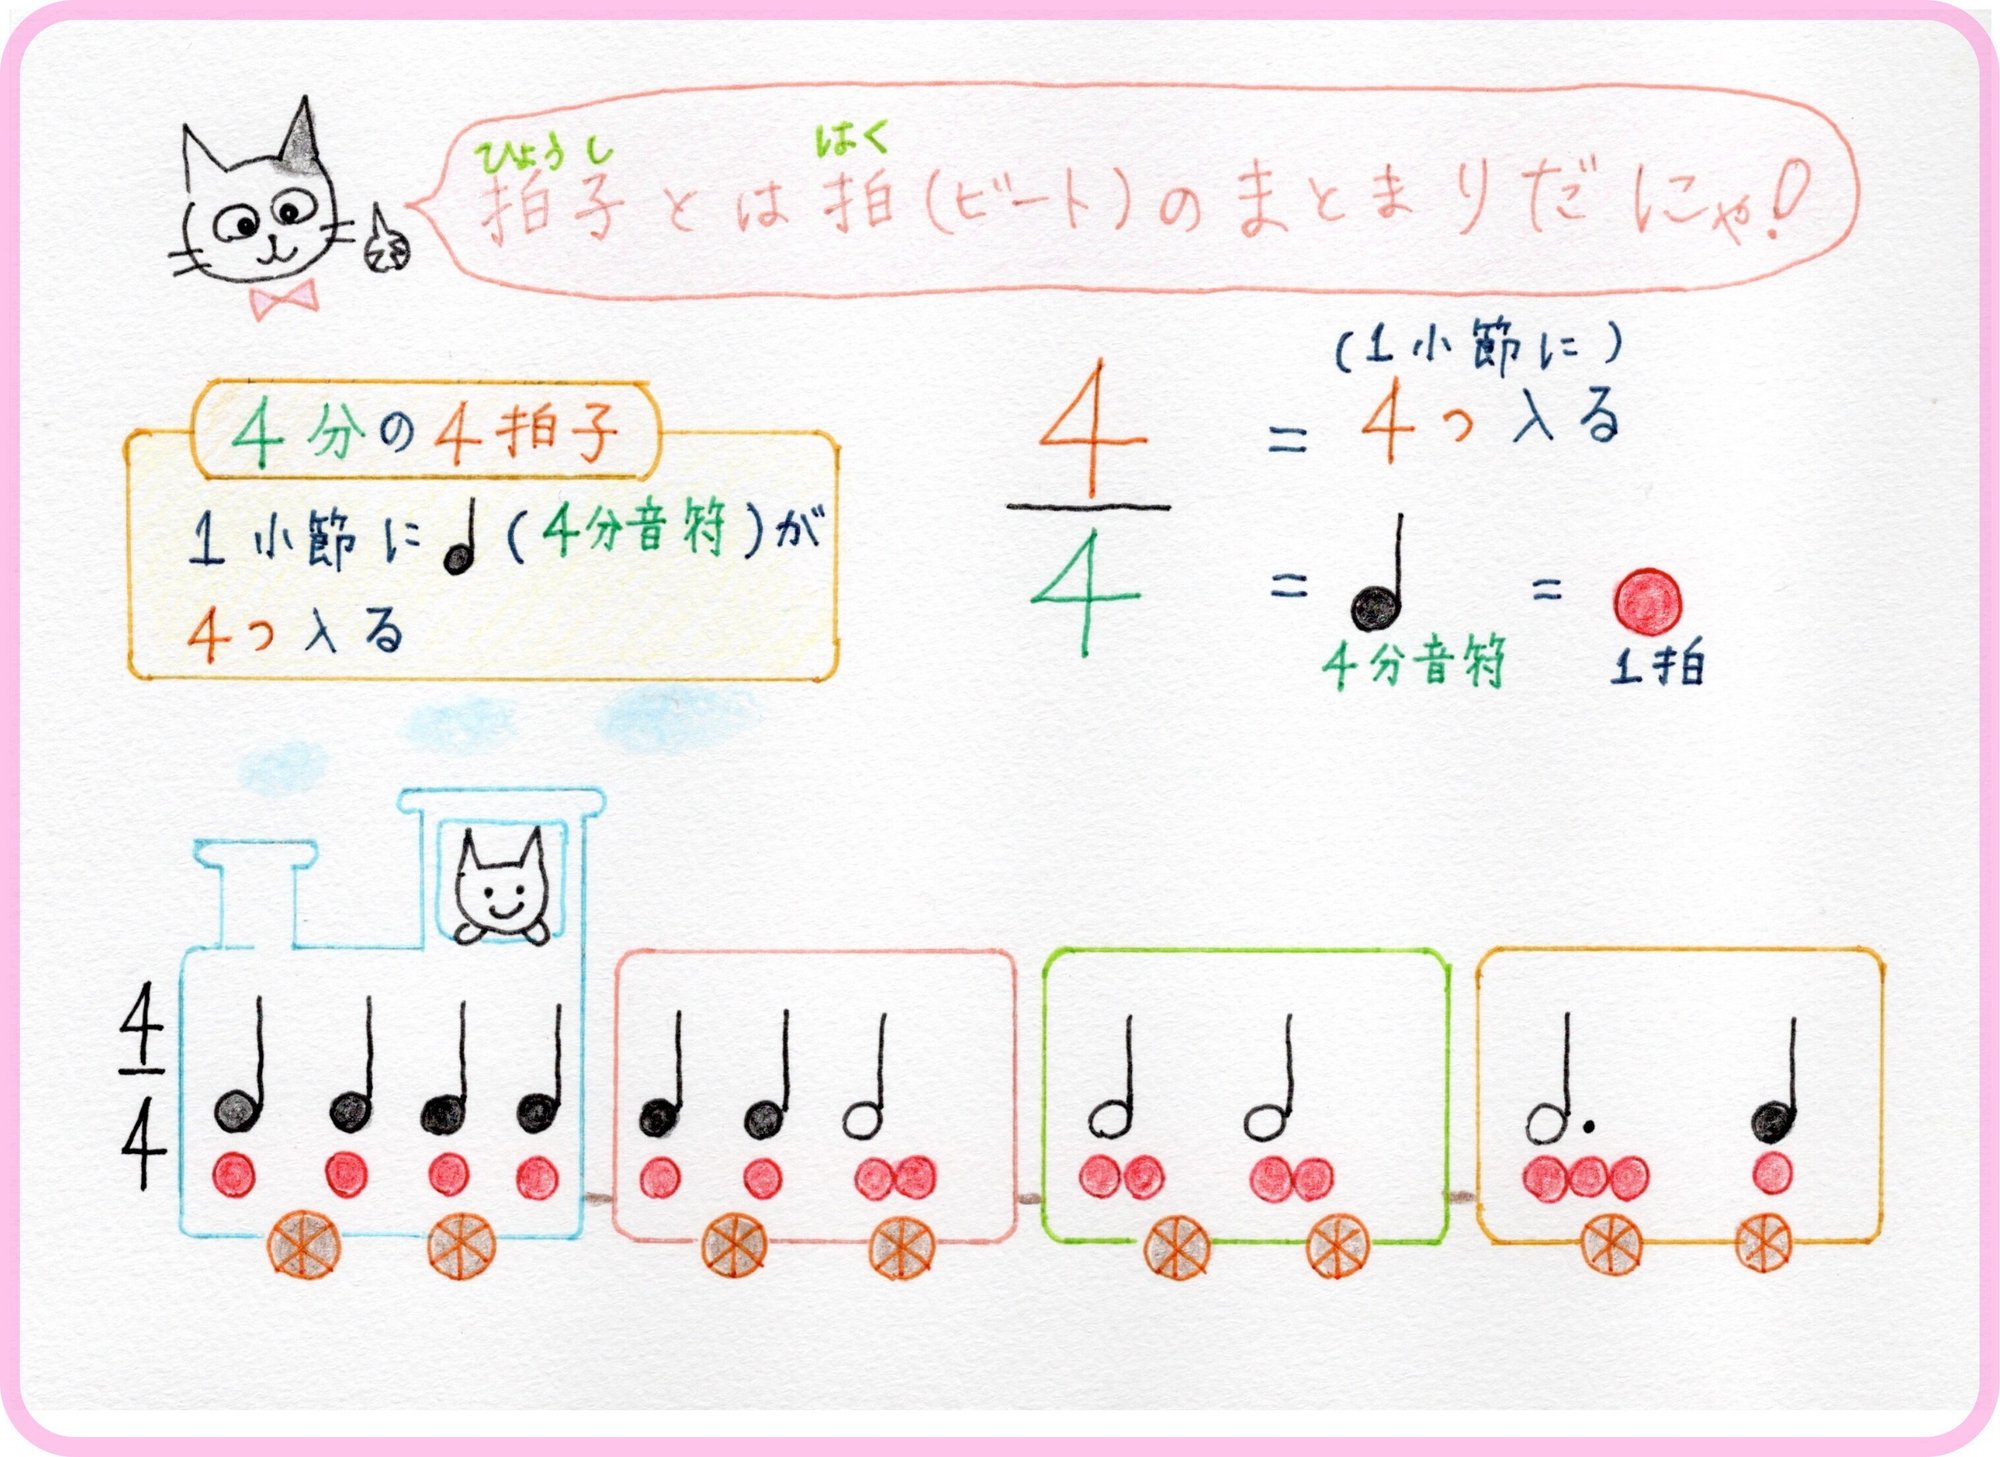 ひょうし はく
拍子とは拍(ビート)のまとまりだにゃ!
4分の4拍子
1小節に♩(4分音符)が
4つ入る
(1小節に)
4 = 4つ入る
4 = ♩ = 
4分音符 1拍
4
4